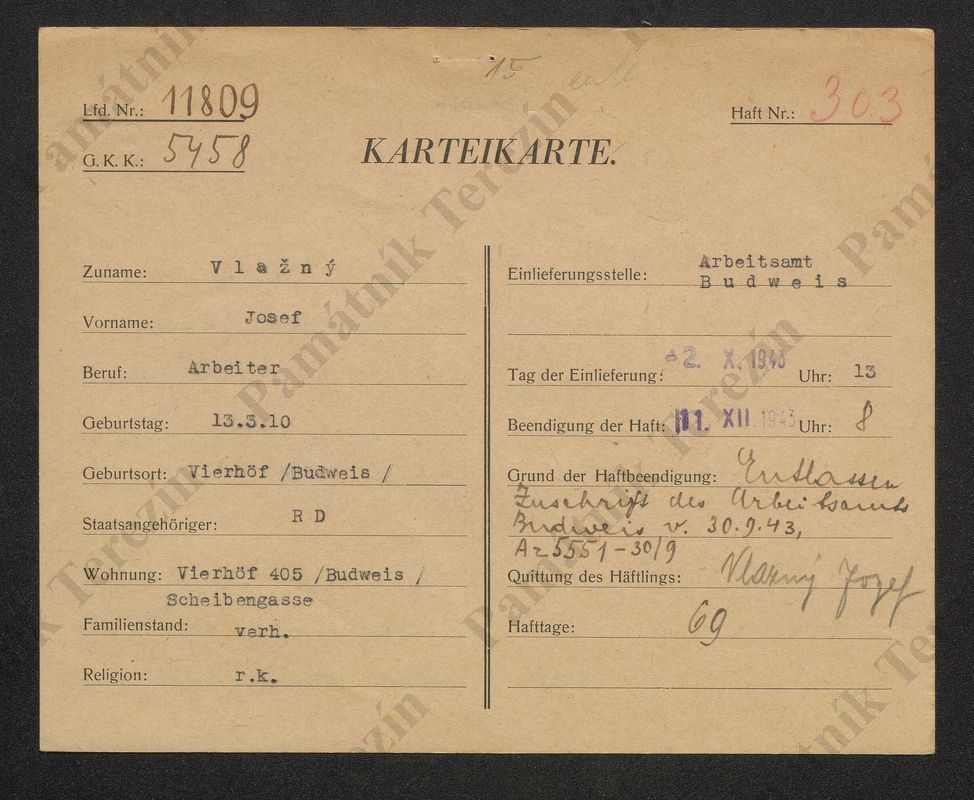 15 entl
Lfd. Nr.: 11809
Haft Nr.: 303
G. K. K.: 5458
KARTEIKARTE.
Zuname: Vlažný
Vorname: Josef
Beruf: Arbeiter
Geburtstag: 13.3.10
Geburtsort: Vierhöf /Budweis /
Staatsangehöriger: R D
Wohnung: Vierhöf 405 /Budweis /
Scheibengasse
Familienstand: verh.
Religion: r.k.
Einlieferungsstelle: Arbeitsamt
Budweis
Tag der Einlieferung: -2. X. 1943 Uhr: 13
Beendigung der Haft: 11. XII. 1943 Uhr: 8
Grund der Haftbeendigung: Entlassen
Zuschrift des Arbeitsamts
Budweis v. 30.9.43,
Az 5551-30/9
Quittung des Häftlings: Vlazny Jozef
Hafttage: 69
Památník Terezín